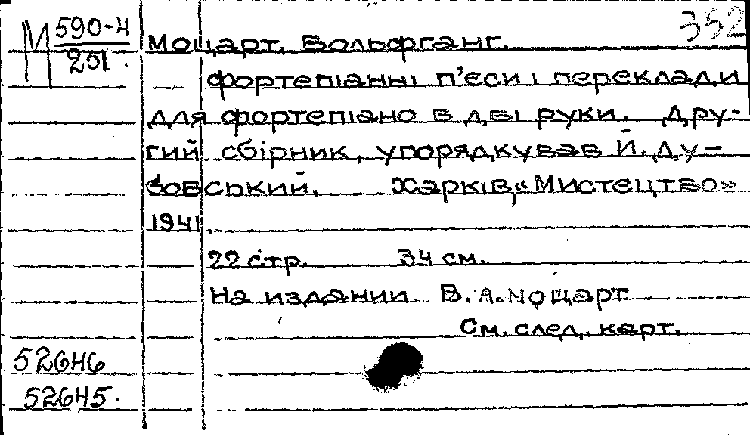 М 590-4
201.
352
Моцарт, Вольфганг.
Фортепіанні п'єси і переклади
для фортепіано в дві руки. Дру-
гий збірник, упорядкував Й. Ду-
бовський. Харків, «Мистецтво»
1941.
22 стр. 34 см.
На издании В. А. Моцарт
См. след. карт.
52646
52645.